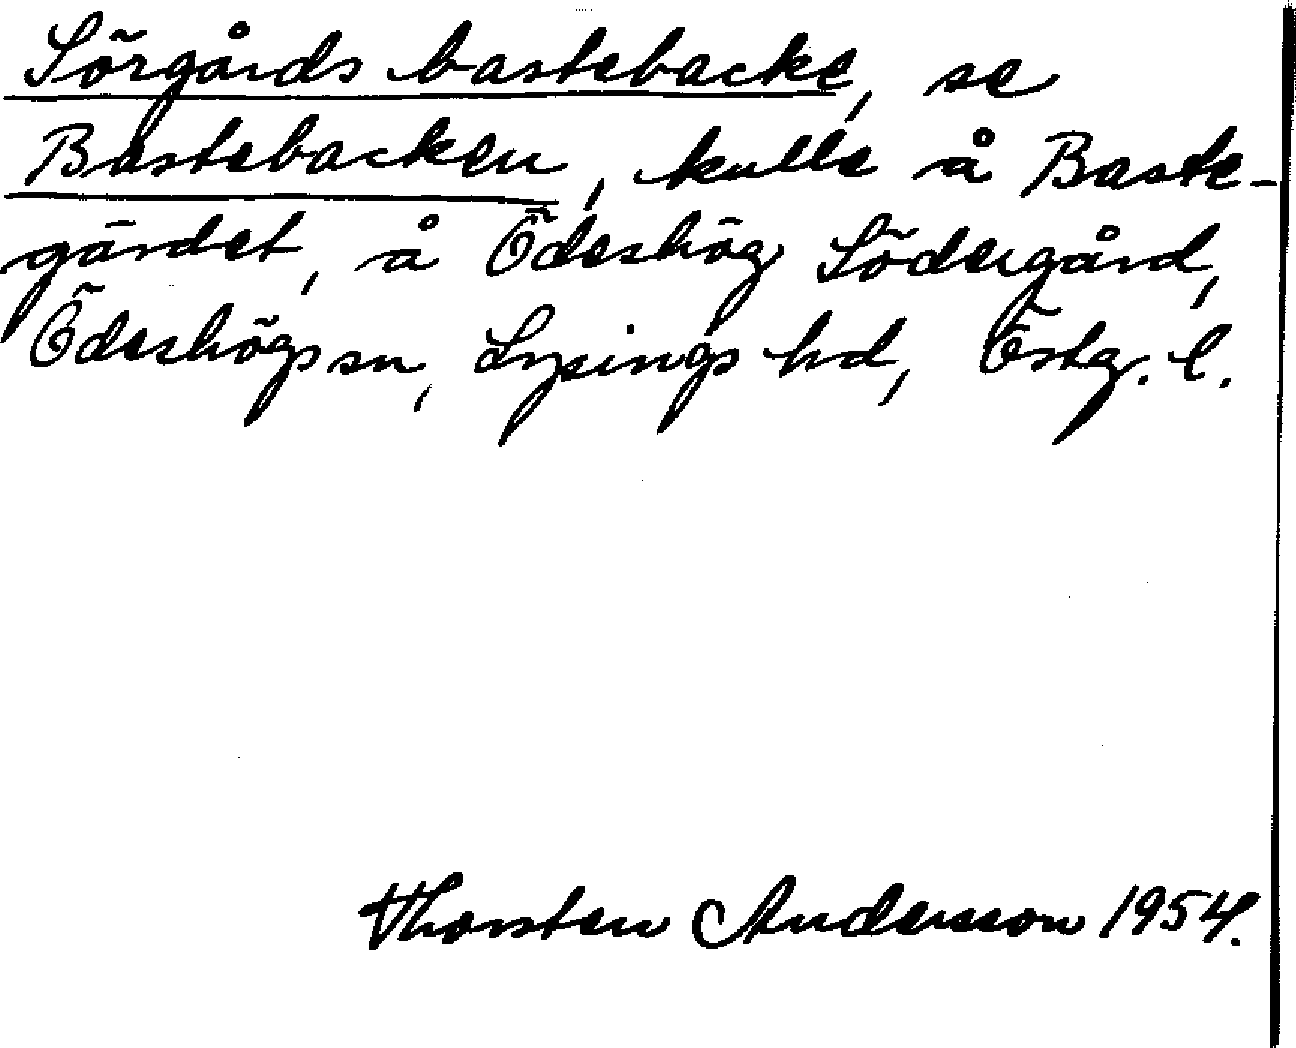 Sörgårds bastebacke, se
Bastebacken, kulle å Baste-
gärdet, å Ödeshög Södergård,
Ödeshögs sn, Lysings hd, Östg. l.
Thorsten Andersson 1954.